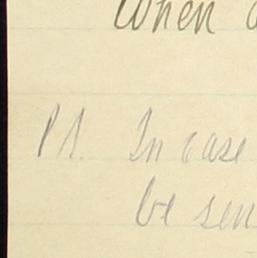 When
P.S. In case
be sen